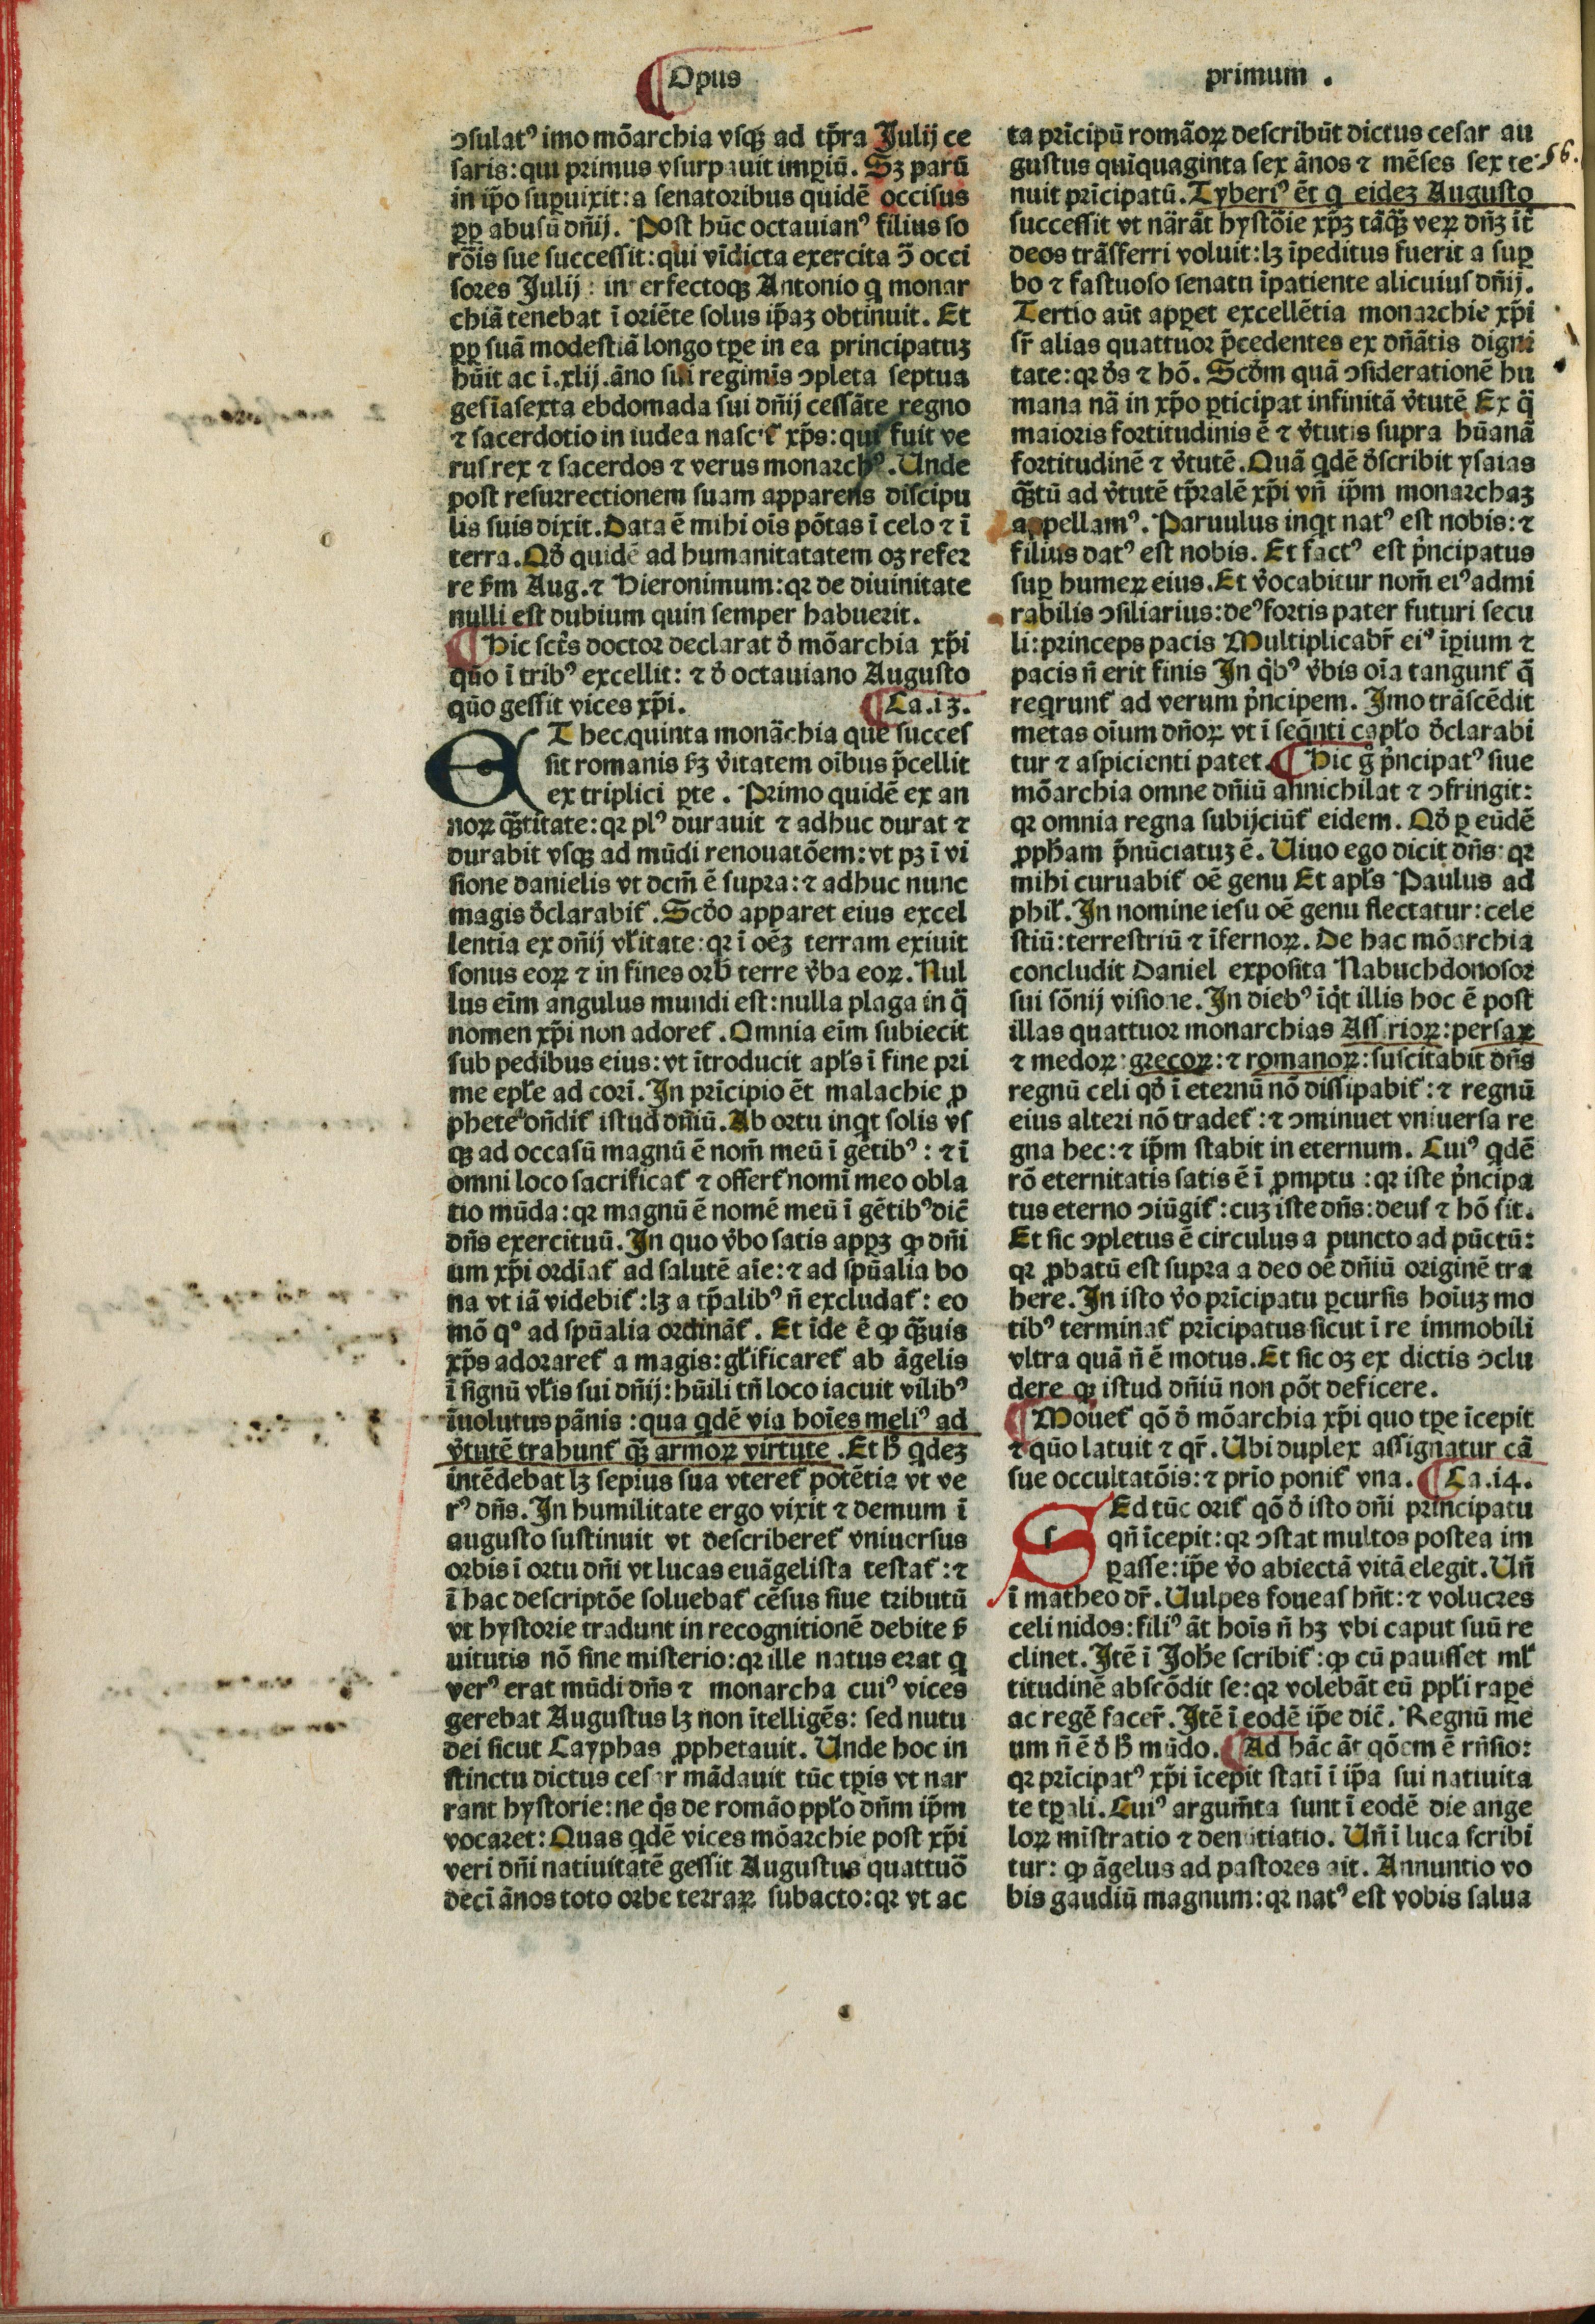 Opus
primum .
ɔsulatꝰ imo mõarchia vsqꝫ ad tp̄ra Julij ce
saris: qui primus vsurpauit imꝑiū. Sꝫ parū
in ip̄o suꝑuixit: a senatoribus quidē occisus
ꝓp abusū dn̄ij. Post hūc octauianꝰ filius so
rōis sue successit: qui vīdicta exercita ↄ̄ occi
sores Julij: interfectoqꝫ Antonio q̇ monar
chiā tenebat ī oriēte solus ip̄aꝫ obtinuit. Et
ꝓp suā modestiā longo tꝑe in ea principatuꝫ
hūit ac ī.xlij.āno sui regimīs ɔpleta septua
gesīasexta ebdomada sui dn̄ij cessāte regno
⁊ sacerdotio in iudea nascit᷑ xp̄s: qui fuit ve
rus rex ⁊ sacerdos ⁊ verus monarchꝰ. Unde
post resurrectionem suam apparens discipu
lis suis dixit. Data ē mihi oīs põtas ī celo ⁊ ī
terra. Qđ quidē ad humanitatatem oꝫ refer
re ẜm Aug. ⁊ Hieronimum: qꝛ de diuinitate
nulli est dubium quin semper habuerit.
¶ Hic sct̄s doctor declarat đ mõarchia xp̄i
qūo ī tribꝰ excellit: ⁊ đ octauiano Augusto
qūo gessit vices xp̄i. ¶ Ca.13.
ET hec quinta monārchia que succes
sit romanis ẜꝫ v̇itatem oībus p̄cellit
ex triplici ꝑte. Primo quidē ex an
noꝝ qꝫ̄titate: qꝛ plꝰ durauit ⁊ adhuc durat ⁊
durabit vsqꝫ ad mūdi renouatōem: vt pꝫ ī vi
sione danielis vt dcm̄ ē supra: ⁊ adhuc nunc
magis đclarabit᷑. Scđo apparet eius excel
lentia ex dn̄ij vl̄itate: qꝛ ī oēꝫ terram exiuit
sonus eoꝝ ⁊ in fines orb̄ terre v̇ba eoꝝ. Nul
lus eīm angulus mundi est: nulla plaga in q̄
nomen xp̄i non adoret᷑. Omnia eīm subiecit
sub pedibus eius: vt ītroducit apl̄s ī fine pri
me epl̄e ad corī. In prīcipio ēt malachie ꝓ
phete on̄dit᷑ istud dn̄iū. Ab ortu inqt solis vs
qꝫ ad occasū magnū ē nom̄ meū ī gētibꝰ: ⁊ ī
omni loco sacrificat᷑ ⁊ offert᷑ nomī meo obla
tio mūda: qꝛ magnū ē nomē meū ī gētibꝰ dic̄
dn̄s exercituū. In quo v̇bo satis apꝑꝫ ꝙ dn̄i
um xp̄i ordīat᷑ ad salutē aīe: ⁊ ad spūalia bo
na vt iā videbit᷑: lꝫ a tp̄alibꝰ n̄ excludat᷑: eo
mō qº ad spūalia ordināt᷑. Et īde ē ꝙ qꝫ̄uis
xp̄s adoraret᷑ a magis: gl̄ificaret᷑ ab āgelis
ī signū vl̄is sui dn̄ij: hūili tn̄ loco iacuit vilibꝰ
īuolutus pānis: qua qdē via hoīes meliꝰ ad
v̇tutē trahunt᷑ qꝫ̄ armoꝝ virtute. Et h̄ qdeꝫ
intēdebat lꝫ sepius sua vteret᷑ potētia vt ve
rꝰ dn̄s. In humilitate ergo vixit ⁊ demum ī
augusto sustinuit vt describeret᷑ vniuersus
orbis ī ortu dn̄i vt lucas euāgelista testat᷑: ⁊
ī hac descriptōe soluebat᷑ cēsus siue tributū
vt hystorie tradunt in recognitionē debite ẜ
uitutis nō sine misterio: qꝛ ille natus erat q̇
verꝰ erat mūdi dn̄s ⁊ monarcha cuiꝰ vices
gerebat Augustus lꝫ non ītelligēs: sed nutu
dei sicut Cayphas ꝓphetauit. Unde hoc in
stinctu dictus cesar mādauit tūc tꝑis vt nar
rant hystorie: ne q̇s de romāo ppl̄o dn̄m ip̄m
vocaret: Quas qdē vices mōarchie post xp̄i
veri dn̄i natiuitatē gessit Augustus quattuō
decī ānos toto orbe terraꝝ subacto: qꝛ vt ac
ta prīcipū romāoꝝ describūt dictus cesar au
gustus quīquaginta sex ānos ⁊ mēses sex te
56.
nuit prīcipatū. Tyberiꝰ ēt q̇ eideꝫ Augusto
successit vt närāt hystōie xp̄ꝫ tāqꝫ̄ veꝝ dn̄ꝫ īt̄
deos trāsferri voluit: lꝫ īpeditus fuerit a suꝑ
bo ⁊ fastuoso senatu īpatiente alicuius dn̄ij.
Tertio aūt apꝑet excellētia monarchie xp̄i
sr̄ alias quattuor p̄cedentes ex dn̄ātis digni
tate: qꝛ đs ⁊ hō. Scđm quā ɔsiderationē hu
mana nā in xp̄o ꝑticipat infinitā v̇tutē Ex q̄
maioris fortitudinis ē ⁊ v̇tutis supra hūanā
fortitudinē ⁊ v̇tutē. Quā qdē đscribit ysaias
qꝫ̄tū ad v̇tutē tp̄ralē xp̄i vn̄ ip̄m monarchaꝫ
appellamꝰ. Paruulus inqt natꝰ est nobis: ⁊
filius datꝰ est nobis. Et factꝰ est ṗncipatus
suꝑ humeꝝ eius. Et v̇ocabitur nom̄ eiꝰ admi
rabilis ɔsiliarius: deꝰ fortis pater futuri secu
li: princeps pacis Multiplicabr̄ eiꝰ īꝑium ⁊
pacis n̄ erit finis In q̇bꝰ v̇bis oīa tangunt᷑ q̄
reqrunt᷑ ad verum ṗncipem. Imo trāscēdit
metas oīum dn̄oꝝ vt ī seq̄nti capl̄o đclarabi
tur ⁊ aspicienti patet. ¶ Hic g̊ ṗncipatꝰ siue
mōarchia omne dn̄iū annichilat ⁊ ɔfringit:
qꝛ omnia regna subijciūt᷑ eidem. Qđ ꝑ eūdē
ꝓph̄am p̄nūciatuꝫ ē. Uiuo ego dicit dn̄s: qꝛ
mihi curuabit᷑ oē genu Et apl̄s Paulus ad
phil̄. In nomine iesu oē genu flectatur: cele
stiū: terrestriū ⁊ īfernoꝝ. De hac mōarchia
concludit Daniel exposita Nabuchdonosor
sui sōnij visione. In diebꝰ īq̇t illis hoc ē post
illas quattuor monarchias Assirioꝝ: persaꝝ
⁊ medoꝝ: grecoꝝ: ⁊ romanoꝝ: suscitabit dn̄s
regnū celi qđ ī eternū nō dissipabit᷑: ⁊ regnū
eius alteri nō tradet᷑: ⁊ ɔminuet vniuersa re
gna hec: ⁊ ip̄m stabit in eternum. Cuiꝰ qdē
rō eternitatis satis ē ī ꝓmptu: qꝛ iste ṗncipa
tus eterno ɔiūgit᷑: cuꝫ iste dn̄s: deus ⁊ hō sit.
Et sic ɔpletus ē circulus a puncto ad pūctū:
qꝛ ꝓbatū est supra a deo oē dn̄iū originē tra
here. In isto v̇o prīcipatu ꝑcursis hoīuꝫ mo
tibꝰ terminat᷑ prīcipatus sicut ī re immobili
vltra quā n̄ ē motus. Et sic oꝫ ex dictis ɔclu
dere qꝛ istud dn̄iū non pōt deficere.
¶ Mouet᷑ qō đ mōarchia xp̄i quo tꝑe īcepit
⁊ qūo latuit ⁊ qr̄. Ubi duplex assignatur cā
sue occultatōis: ⁊ prīo ponit᷑ vna. ¶ Ca.14.
SEd tūc orit᷑ qō đ isto dn̄i principatu
qn̄ īcepit: qꝛ ɔstat multos postea im
ꝑasse: ip̄e v̇o abiectā vitā elegit. Un̄
ī matheo dr̄. Uulpes foueas hn̄t: ⁊ volucres
celi nidos: filiꝰ āt hoīs n̄ hꝫ vbi caput suū re
clinet. Itē ī Joh̄e scribit᷑: ꝙ cū pauisset ml̄
titudinē abscōdit se: qꝛ volebāt eū ppl̄i raꝑe
ac regē facer̄. Itē ī eodē ip̄e dic̄. Regnū me
um n̄ ē đ h̄ mūdo. ¶ Ad hāc āt qōem ē rn̄sio:
qꝛ prīcipatꝰ xp̄i īcepit statī ī ip̄a sui natiuita
te tꝑali. Cuiꝰ argum̄ta sunt ī eodē die ange
loꝝ mīstratio ⁊ denūtiatio. Un̄ ī luca scribi
tur: ꝙ āgelus ad pastores ait. Annuntio vo
bis gaudiū magnum: qꝛ natꝰ est vobis salua